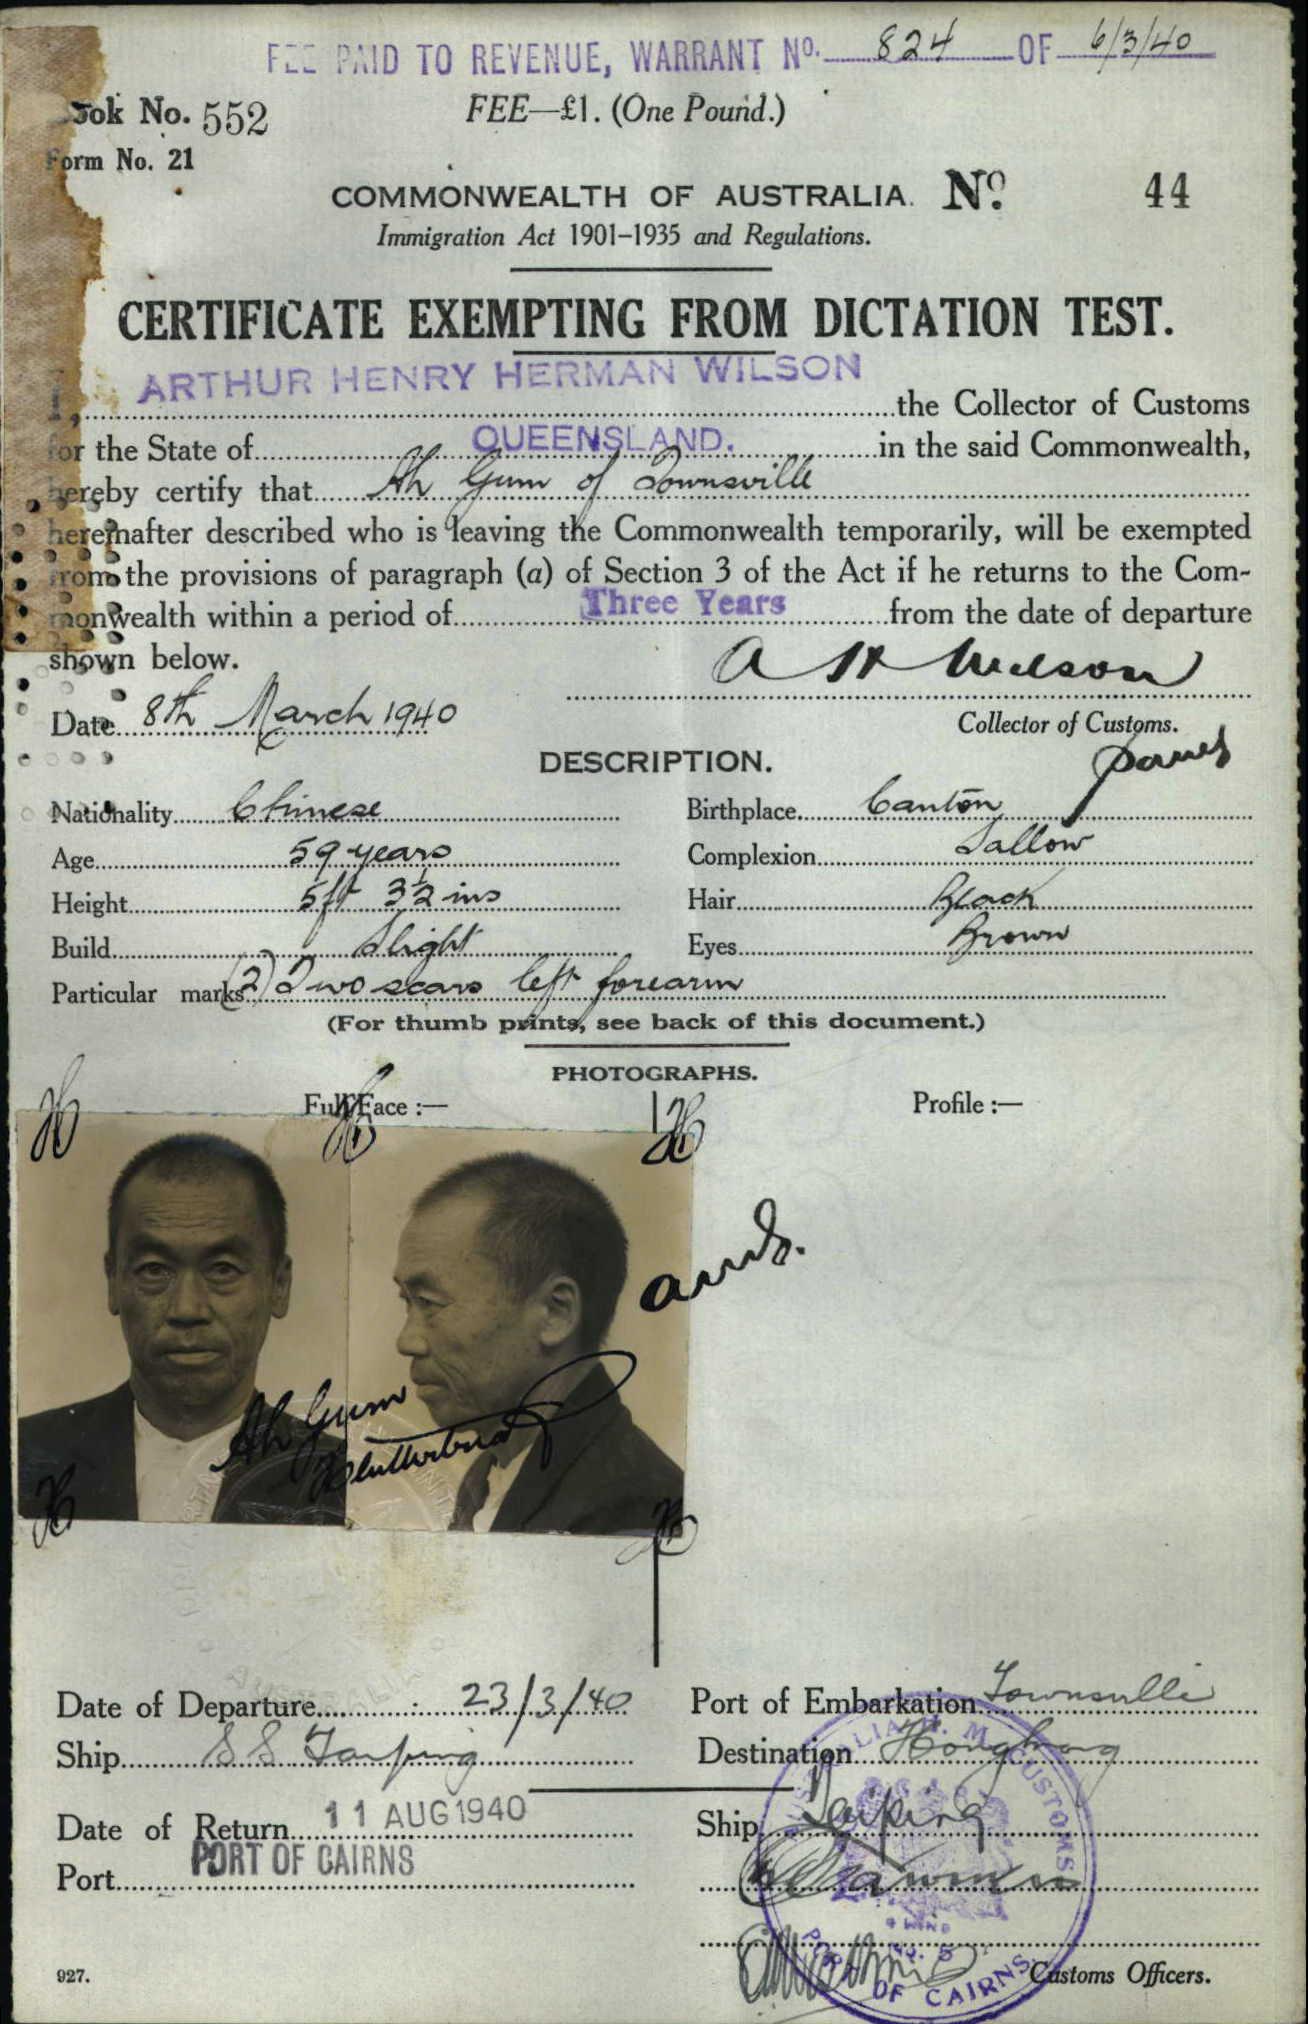 FEE PAID TO REVENUE, WARRANT No. 824 OF 6/3/40
Book No. 552
FEE—£1. (One Pound.)
Form No. 21
COMMONWEALTH OF AUSTRALIA. No. 44
Immigration Act 1901-1935 and Regulations.
CERTIFICATE EXEMPTING FROM DICTATION TEST.
I, ARTHUR HENRY HERMAN WILSON the Collector of Customs
for the State of QUEENSLAND. in the said Commonwealth,
hereby certify that Ah Gum of Townsville
hereinafter described who is leaving the Commonwealth temporarily, will be exempted
from the provisions of paragraph (a) of Section 3 of the Act if he returns to the Com-
monwealth within a period of Three Years from the date of departure
shown below.
A H Wilson
Date 8th March 1940
Collector of Customs.
DESCRIPTION.
Nationality Chinese Birthplace Canton
Age 59 years Complexion Sallow
Height 5ft 3½ ins Hair Black
Build Slight Eyes Brown
Particular marks (2) Two scars left forearm
(For thumb prints, see back of this document.)
PHOTOGRAPHS.
Full Face :— Profile :—
Ah Gum
Date of Departure 23/3/40 Port of Embarkation Townsville
Ship S S Taiping Destination Hongkong
Date of Return 11 AUG 1940 Ship Taiping
Port PORT OF CAIRNS
AUSTRALIA H. M. CUSTOMS
No. 5
PORT OF CAIRNS
Customs Officers.
927.